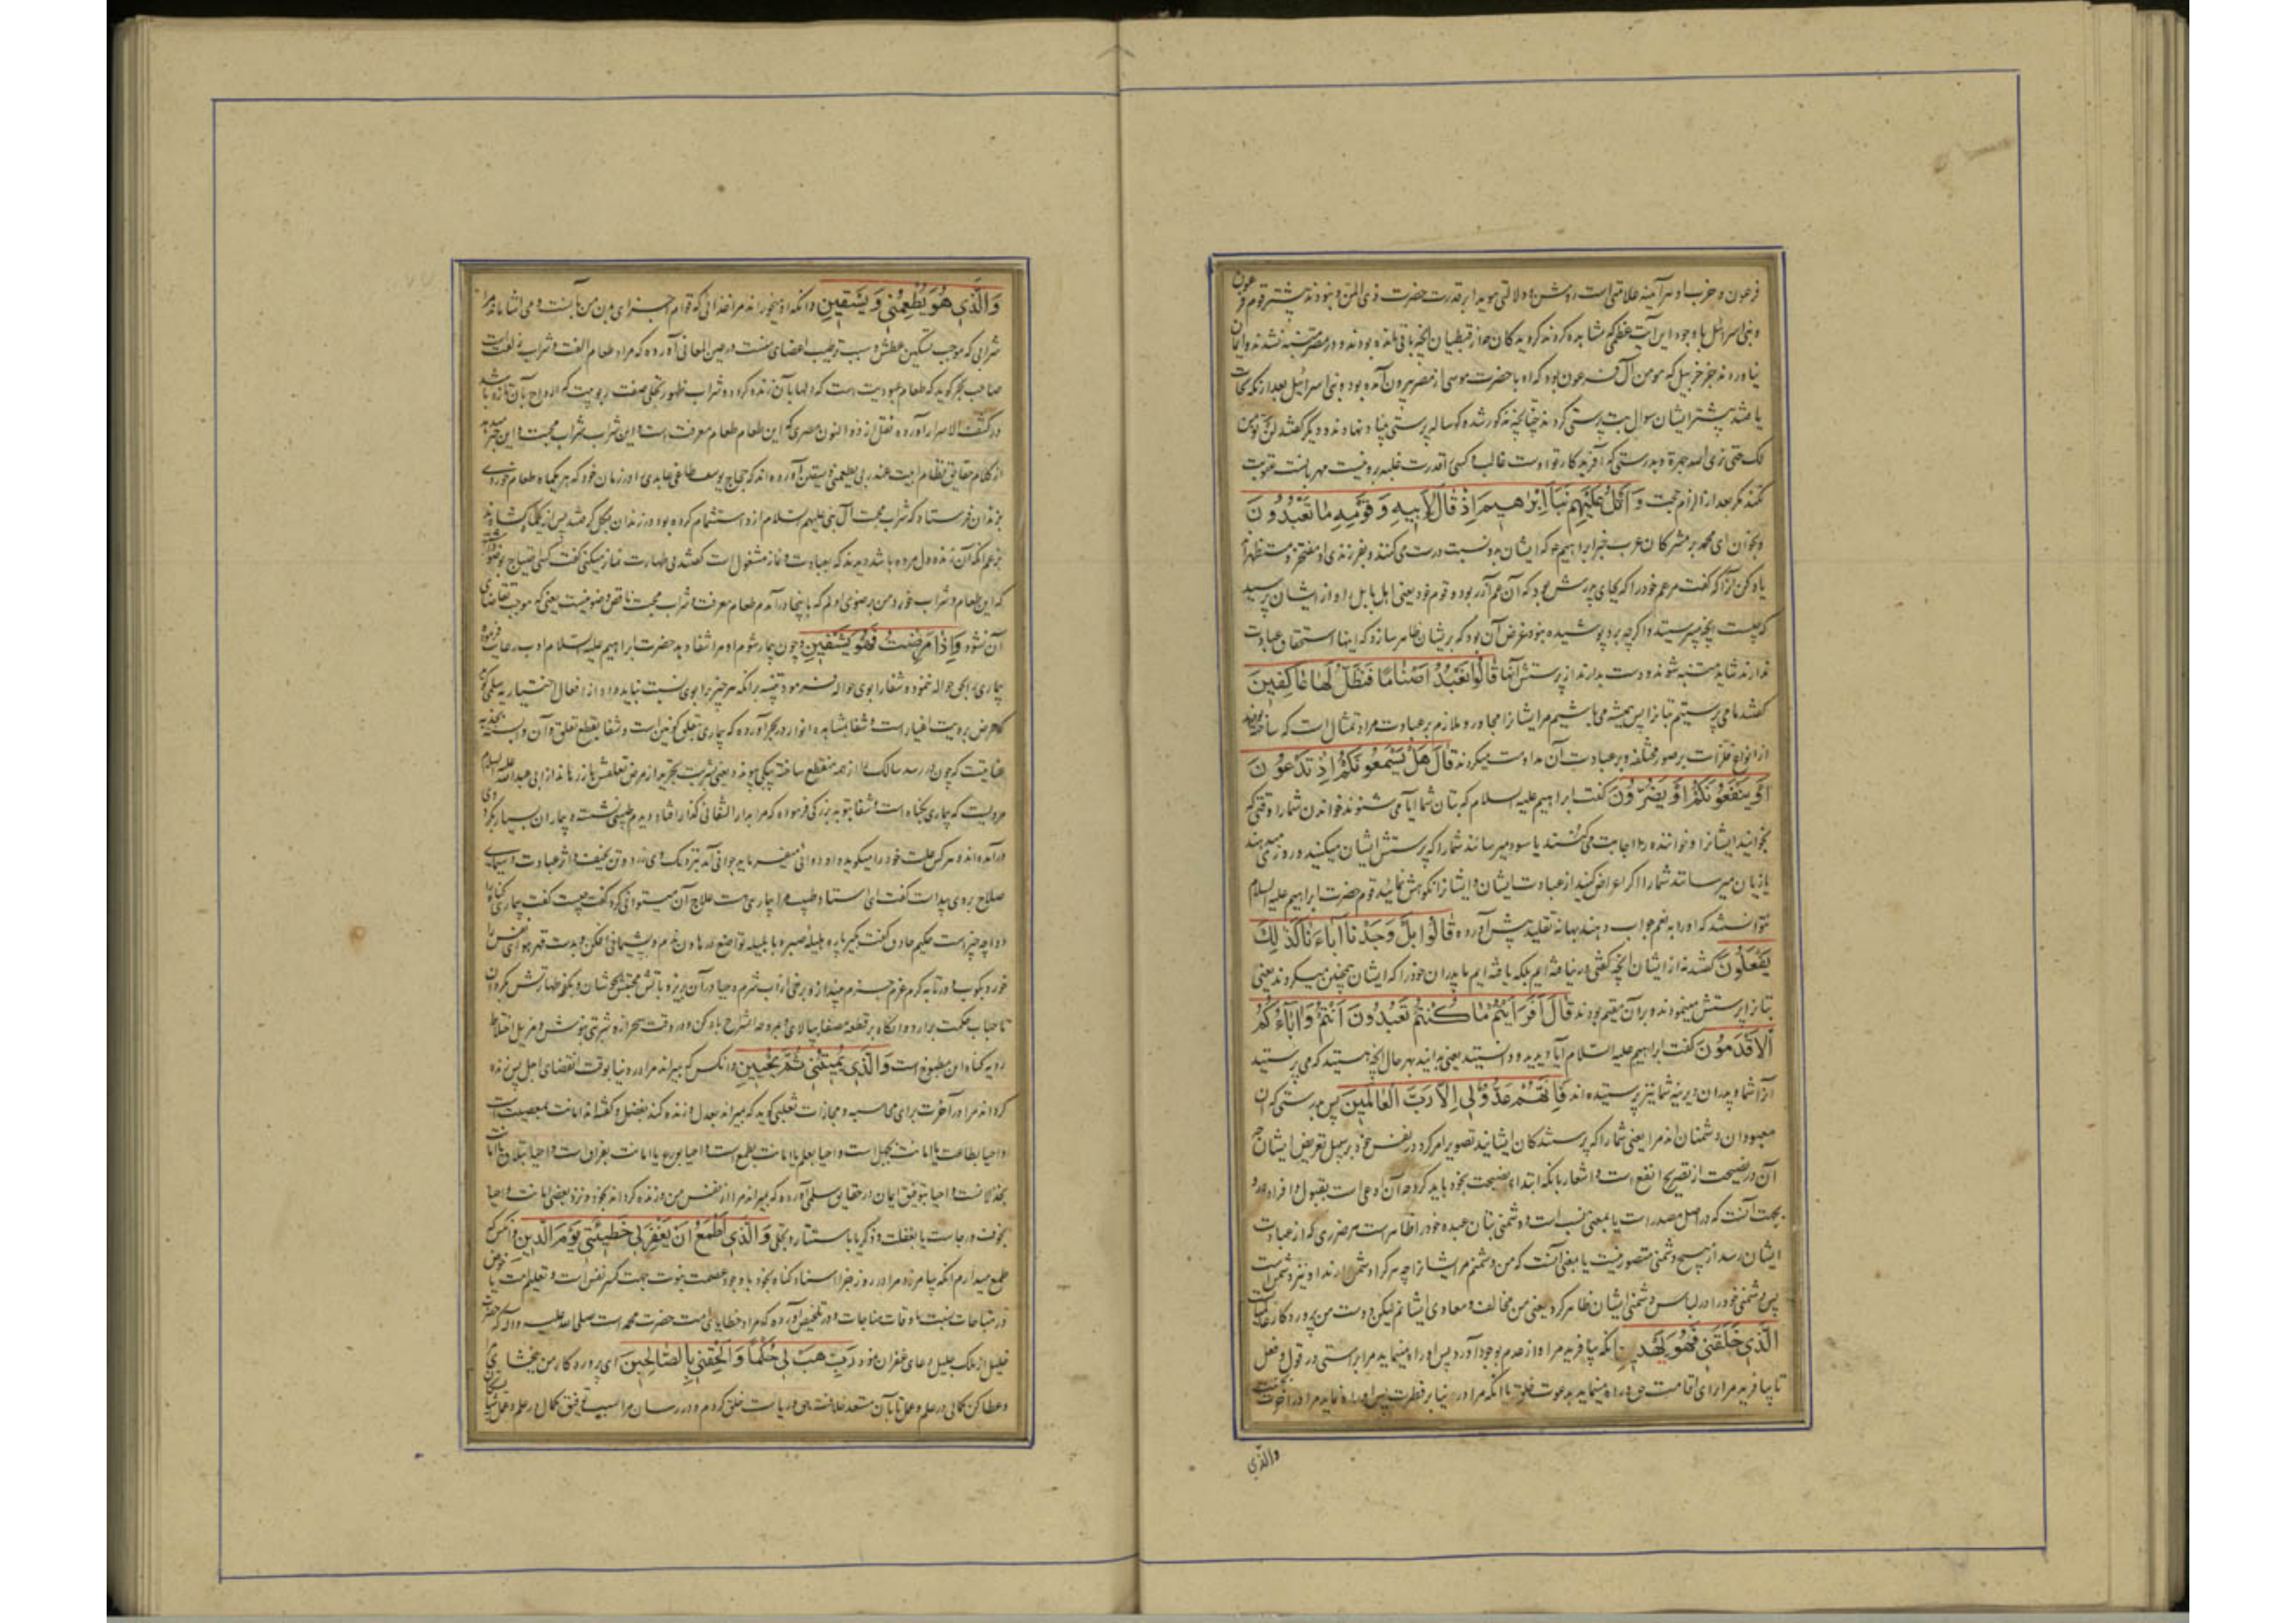 فرعون و حزب او هر آینه علامتی است روشن و دلالتی هویدا بر قدرت حضرت ذی المنن و نبودند بیشتر قوم فرعون
و بنی اسرائیل با وجود این آیت عظمی که مشاهده کردند گرویدگان چه از قبطیان آنچه باقی مانده بودند در مصر متنبه نشدند و ایمان
نیاوردند جز خربیل که مومن آل فرعون بود که او با حضرت موسی از مصر بیرون آمده بود و بنی اسرائیل بعد از آنکه نجات
یافتند بیشتر ایشان سوال بت پرستی کردند چنانچه مذکور شد و گوساله پرستی بنیاد نهادند و دیگر گفتند لن نومن
لک حتی نری الله جهرة و بدرستی که آفریدگار تو اوست غالب که کسی را قدرت غلبه برو نیست مهربانست عقوبت
نکند مگر بعد از الزام حجت وَاتْلُ عَلَيْهِمْ نَبَأَ اِبْرٰهِيمَ اِذْ قَالَ لِاَبِيهِ وَقَوْمِهِ مَا تَعْبُدُونَ
و بخوان ای محمد بر مشرکان عرب خبر ابراهیم که ایشان بدو نسبت درست می کنند و بفرزندی او مفتخر و مستظهراند
یاد کن آنرا که گفت مر عم خود را که بجای پدرش بود که آن عم آزر بود و قوم خود یعنی اهل بابل را و از ایشان پرسید
که چیست آنچه میپرستید و اگرچه برو پوشیده نبود غرض آن بود که بریشان ظاهر سازد که اینها استحقاق عبادت
ندارند شاید متنبه شوند و دست بدارند از پرستش آنها قَالُوا نَعْبُدُ اَصْنَامًا فَنَظَلُّ لَهَا عَاكِفِينَ
گفتند ما می پرستیم بتانرا پس همیشه می باشیم مر ایشانرا مجاور و ملازم بر عبادت مراد تمثال است که ساخته بودند
از انواع فلزات بر صور مختلفه و بر عبادت آن مداومت میکردند قَالَ هَلْ يَسْمَعُونَكُمْ اِذْ تَدْعُونَ
اَوْ يَنْفَعُونَكُمْ اَوْ يَضُرُّونَ گفت ابراهیم علیه السلام که بتان شما آیا می شنوند خواندن شما را وقتی که
بخوانید ایشانرا و خواننده را اجابت می کنند یا سود میرسانند شما را که پرستش ایشان میکنید و روزی میدهند
یا زیان میرسانند شما را اگر اعراض کنید از عبادت ایشان و ایشانرا نکوهش نمائید قوم حضرت ابراهیم علیه السلام
نتوانستند که او را به نعم جواب دهند بهانه تقلید پیش آورده قَالُوا بَلْ وَجَدْنَا اٰبَاءَنَا كَذٰلِكَ
يَفْعَلُونَ گفتند نه از ایشان آنچه گفتی در نیافته ایم بلکه یافته ایم ما پدران خود را که ایشان همچنین میکردند یعنی
بتانرا پرستش مینمودند و بر آن مقیم بودند قَالَ اَفَرَاَيْتُمْ مَا كُنْتُمْ تَعْبُدُونَ اَنْتُمْ وَاٰبَاؤُكُمُ
الْاَقْدَمُونَ گفت ابراهیم علیه السلام آیا دیدید و دانستید یعنی بدانید بهر حال آنچه هستید که می پرستید
آنرا شما و پدران دیرینه شما نیز پرستیده اند فَاِنَّهُمْ عَدُوٌّ لِي اِلَّا رَبَّ الْعَالَمِينَ پس بدرستی که آن
معبودان دشمنان اند مرا یعنی شما را که پرستندگان ایشانید تصویر امر کرد در نفس خود بر سبیل تعریض ایشان چه
آن در نصیحت از تصریح انفع است و اشعار بآنکه ابتدای نصیحت بخود باید کرد چه آن ادعی است بقبول و افراد عدو
بجهت آنست که در اصل مصدر است یا بمعنی نسب است و دشمنی بتان عبده خود را ظاهر است هر ضرری که از عبادت
ایشان رسد از هیچ دشمنی متصور نیست یا معنی آنست که من دشمنم مر ایشانرا چه هر که را دشمن دارند او نیز دشمن است
پس دشمنی خود را در لباس دشمنی ایشان ظاهر کرد یعنی من مخالف و معادی ایشانم لیکن دوست من پروردگار عالمیانست
الَّذِي خَلَقَنِي فَهُوَ يَهْدِينِ آنکه بیافرید مرا و از عدم بوجود آورد پس او راه مینماید مرا براستی در قول و فعل
تا بیافرید مرا برای اقامت حق و راه مینماید بدعوت خلق یا آنکه مرا در دنیا بر فطرت پس او راه نماید مرا در آخرت
والذی
وَالَّذِي هُوَ يُطْعِمُنِي وَيَسْقِينِ و آنکه او میخوراند مرا غذائی که قوام اجزای بدن من بآنست و می آشاماند مرا
شرابی که موجب تسکین عطش و سبب ترطیب اعضای منست در عین المعانی آورده که مراد طعام الفت و شراب زلفت است
صاحب بحر گوید که طعام عبودیت است که دلها بآن زنده گردد و شراب ظهور تجلی صفت ربوبیت که ارواح بآن تازه باشد
در کشف الاسرار آورده نقل از ذو النون مصری که این طعام طعام معرفت است و این شراب شراب محبت و این
از کلام حقایق نظام ابیت عند ربی یطعمنی و یسقین آورده اند که حجاج یوسف طاغی عابدی را در زمان خود که هر یکماه طعام خوردی
بزندان فرستاد که شراب محبت آل نبی علیهم السلام ازو استشمام کرده بود
که این طعام و شراب خوردمن بر وضوی اولم که باینجا درآمدم طعام معرفت و شراب محبت ناقض وضو نیست یعنی که موجب تقاضای
آن نشود وَاِذَا مَرِضْتُ فَهُوَ يَشْفِينِ و چون بیمار شوم او مرا شفا دهد حضرت ابراهیم علیه السلام ادب رعایت فرموده
بیماری را بخود حواله نموده و شفا را بوی حواله فرمود
که مرض برویت اغیار است و شفا بمشاهده انوار در بحر آورده که بیماری تعلق کونین است و شفا بقطع تعلق و آن وابسته بجذبه
عنایتیست که چون در رسد سالک را از همه منقطع ساخته بیکی پیوند دهد یعنی بشربت تجرید از مرض تعلقش باز رهاند از ابی عبدالله علیه السلام
مرویست که بیماری بگناه است و شفا بتوبه بزرگی فرموده که مرا بدار الشفائی گذار افتاد دیدم طبیبی نشسته و بیماران بسیار گرد وی
درآمده اند هر کس علت خود را میگوید و او دوائی میفرماید جوانی آمد نزدیک وی زرد و تن نحیف و اثر عبادت و سیمای
صلاح بر وی پیدا است گفت ای استاد طبیب مرا بیماریست علاج آن میتوانی کرد گفت چیست گفت بیماری گناه را
دوا چه چیز است حکیم حاذق گفت بگیر پاره هلیله صبر و با بلیله تواضع در هاون ندم و پشیمانی افکن و بدست قهر هوای نفس را
رویه گناه این مطبوخ است وَالَّذِي يُمِيتُنِي ثُمَّ يُحْيِينِ و آنکس که بمیراند مرا در دنیا بوقت انقضای اجل پس زنده
گرداند مرا در آخرت برای محاسبه و مجازات ثعلبی گوید که بمیراند بعدل و زنده کند بفضل و گفته اند اماتت بمعصیت است
و احیا بطاعت یا اماتت بجهل است و احیا بعلم یا اماتت بطمع است و احیا بورع یا اماتت بفراق است و احیا بتلاق یا اماتت
بخذلانست و احیا بتوفیق ایمان در حقایق سلمی آورده که بمیراند مرا از نفس من و زنده گرداند بخود و نزد بعضی اماتت و احیا
بخوف و رجاست یا بغفلت و ذکر یا باستتار و تجلی وَالَّذِي اَطْمَعُ اَنْ يَغْفِرَ لِي خَطِيئَتِي يَوْمَ الدِّينِ و آنکس که
طمع میدارم آنکه بیامرزد مرا در روز جزا اسناد گناه بخود با وجود عصمت نبوت جهت کسر نفس است و تعلیم امت یا غرض
ذر مباحات نسبت باوقات مناجات و در تلخیص آورده که مراد خطایای امت حضرت محمد است صلی الله علیه و آله که حضرت
خلیل از ملک جلیل دعای غفران نمود رَبِّ هَبْ لِي حُكْمًا وَاَلْحِقْنِي بِالصَّالِحِينَ ای پروردگار من ببخشای مرا
و عطا کن کمالی در علم و عمل تا بآن مستعد خلافت حق و ریاست خلق گردم و در رسان مرا بسبب توفیق کمال در علم و عمل